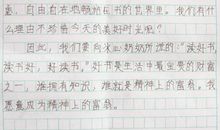 意、自由自在地畅游在书的世界里。我们有什
么理由不珍惜今天的美好时光呢？
因此，我们要向冰心奶奶所说的：“读好书，
读书好，好读书。”好书是生活中最宝贵的财富
之一，谁拥有知识，谁就是精神上的富翁。我
愿意成为精神上的富翁。